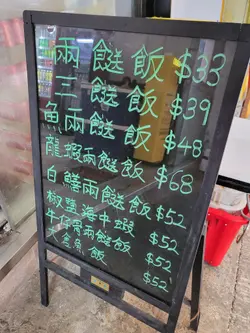 兩餸飯 $33
三餸飯 $39
魚兩餸飯 $48
龍蝦兩餸飯 $68
白鱔兩餸飯 $52
椒鹽海中蝦 $52
牛仔骨兩餸飯 $52
魚飯 $52